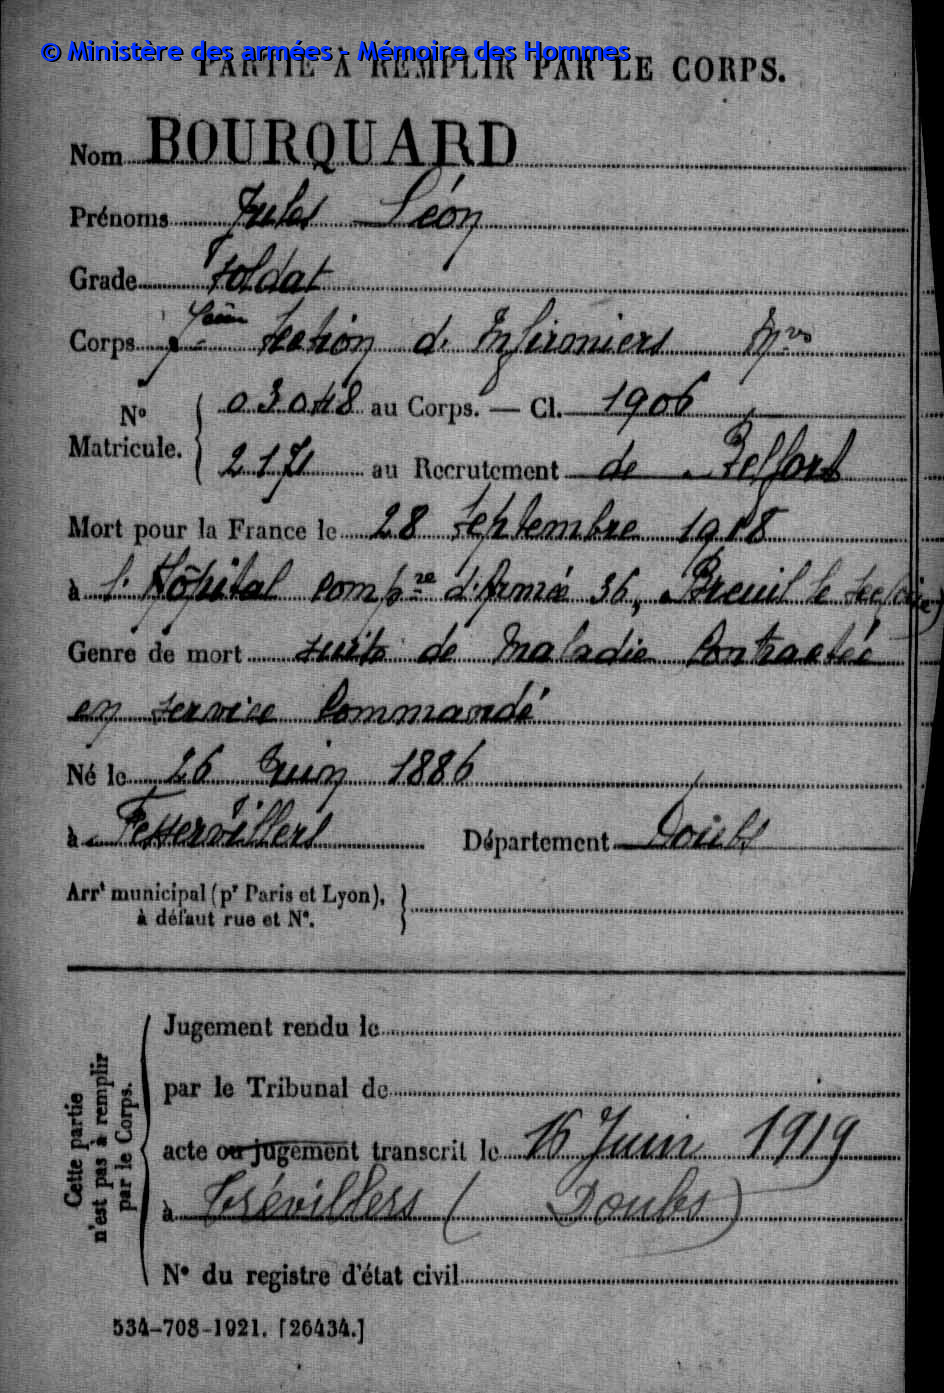 © Ministère des armées - Mémoire des Hommes
PARTIE À REMPLIR PAR LE CORPS.
Nom BOURQUARD
Prénoms Jules Léon
Grade Soldat
Corps 7ème Section d'Infirmiers Mres
No Matricule. 03048 au Corps. — Cl. 1906
2171 au Recrutement de Belfort
Mort pour la France le 28 Septembre 1918
à l'Hôpital Compre d'Armée 36, Breuil le Sec (Oise)
Genre de mort suite de Maladie Contractée
en service Commandé
Né le 26 Juin 1886
à Fessevillers Département Doubs
Arrt municipal (pr Paris et Lyon),
à défaut rue et No.
Jugement rendu le
par le Tribunal de
acte ou jugement transcrit le 16 Juin 1919
à Trévillers (Doubs)
No du registre d'état civil
Cette partie
n'est pas à remplir
par le Corps.
534-708-1921. [26434.]